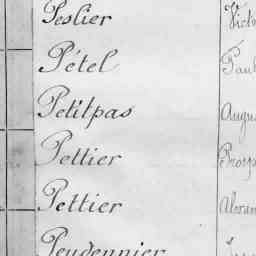 Peslier Vict
Pétel Paul
Petitpas Augu
Pettier Prosp
Pettier Alexan
Peudennier